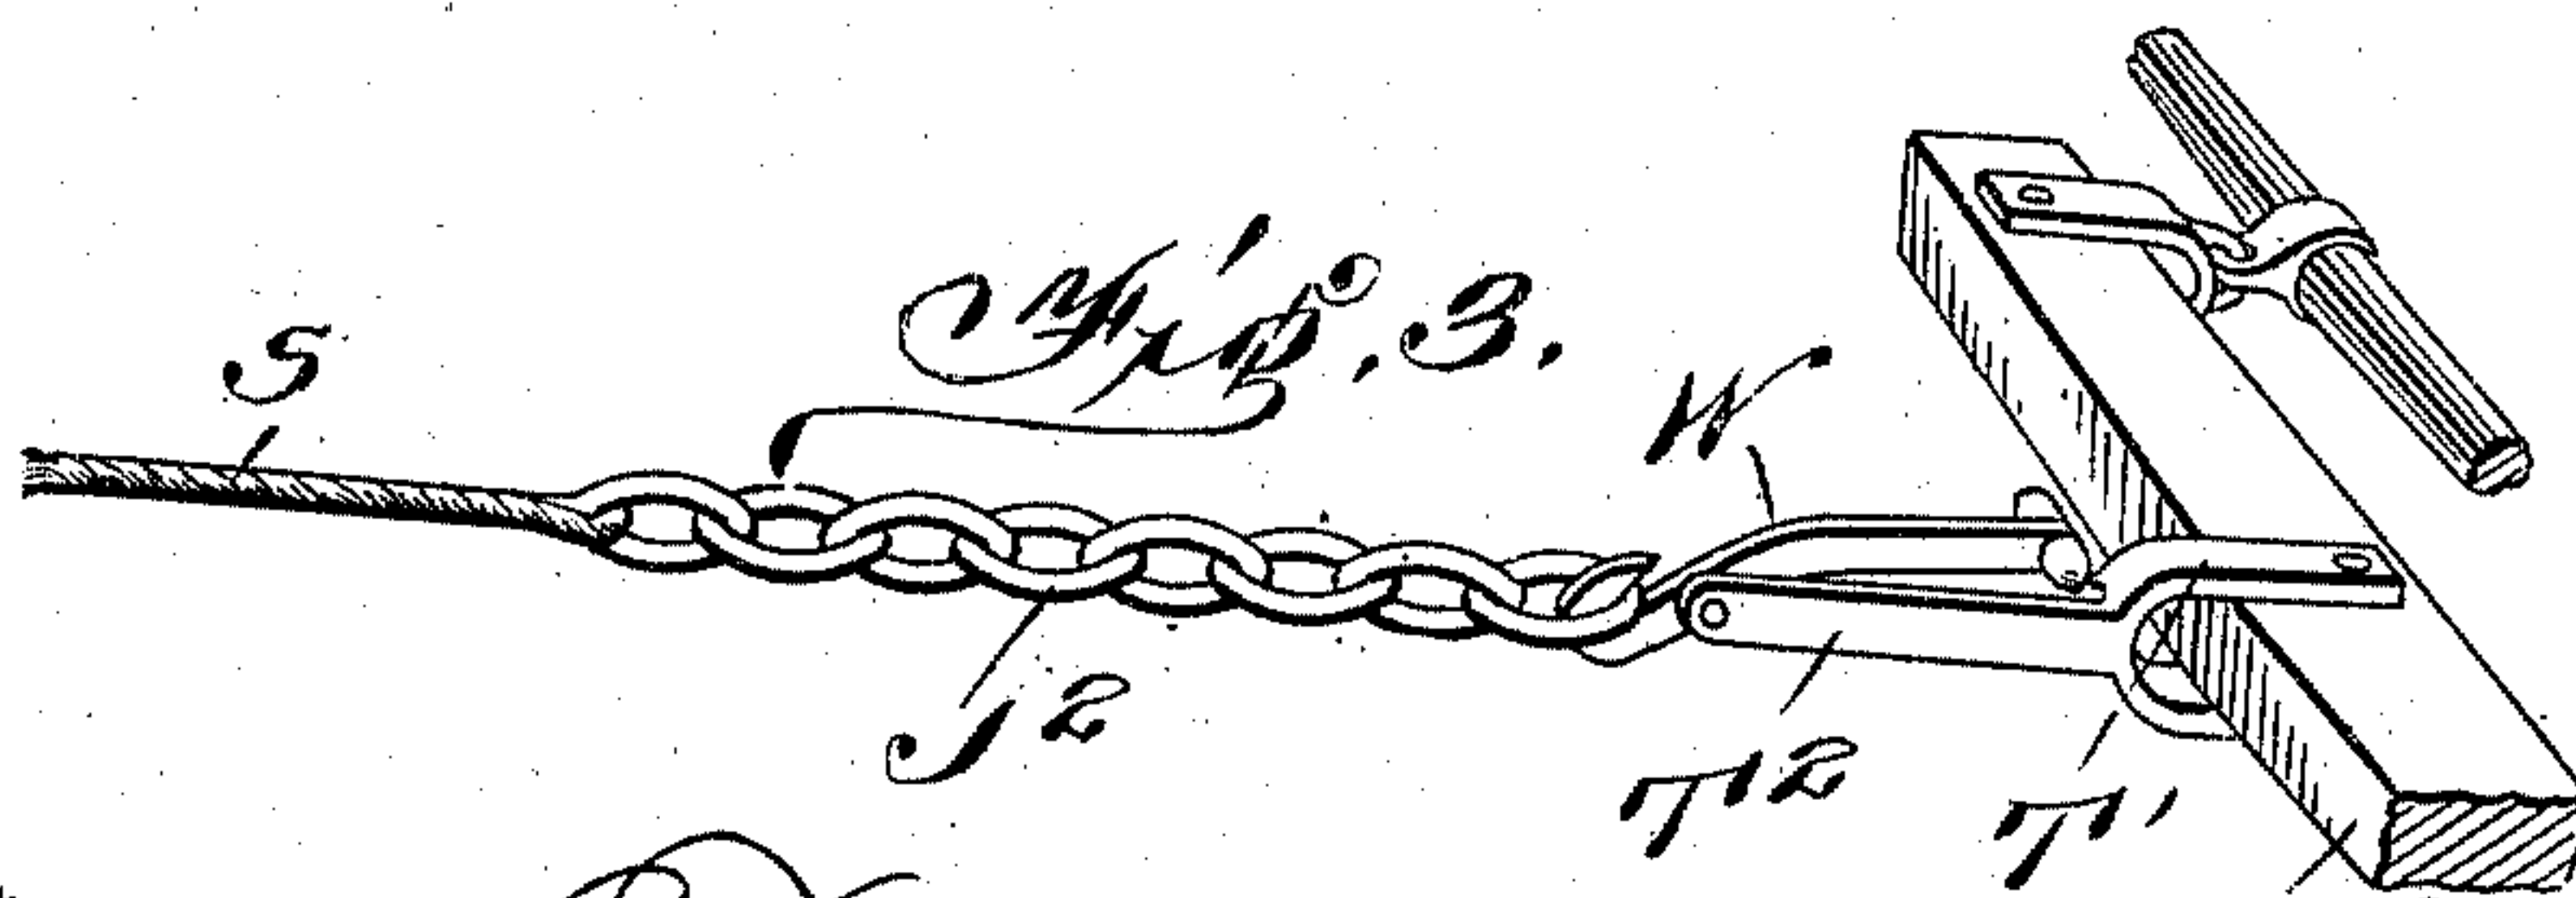 Fig. 3.
S
W
J2
T2
T'